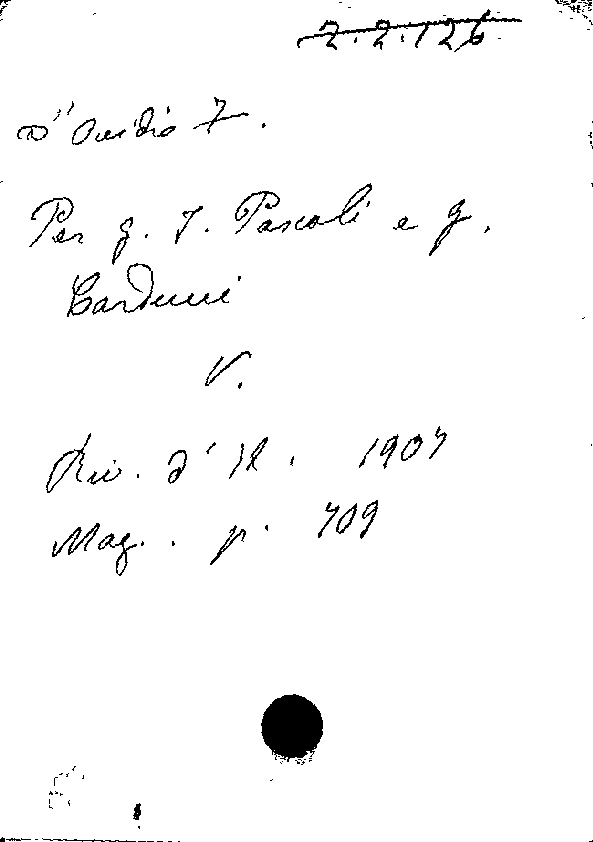 2.2.126
D'Ovidio F.
Per g. I. Pascoli e g.
Carducci
V.
Riv. d'It. 1907
Mag. p. 709